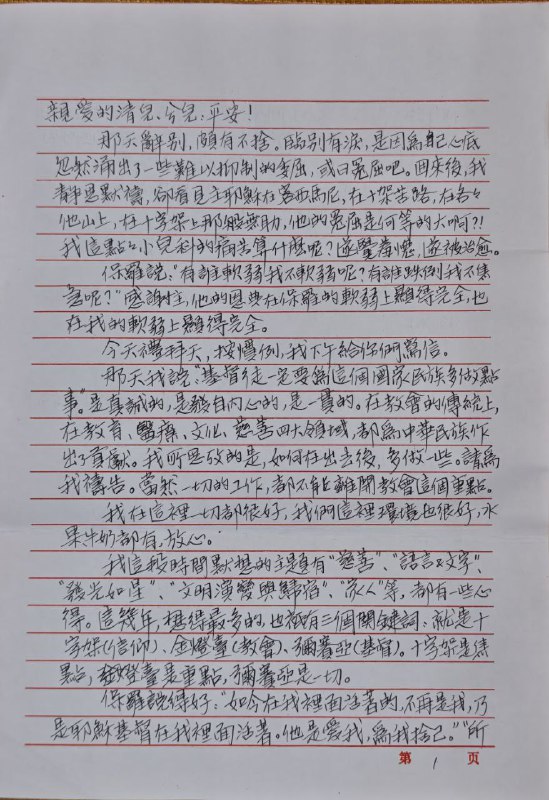 親愛的清兒、兮兒:平安!
那天辭別,頗有不捨。臨別有淚,是因為自己心底
忽然涌出了一些難以抑制的委屈,或曰冤屈吧。回來後,我
靜思默禱,卻看見主耶穌在客西馬尼,在十架苦路,在各各
他山上,在十字架上那般無助,他的冤屈是何等的大啊?!
我這點點小兒科的痛苦算什麼呢?遂覺羞愧,遂被治愈。
保羅說:“有誰軟弱我不軟弱呢?有誰跌倒我不焦
急呢?”感謝主,他的恩典在保羅的軟弱上顯得完全,也
在我的軟弱上顯得完全。
今天禮拜天,按慣例,我下午給你們寫信。
那天我說:“基督徒一定要為這個國家民族多做點
事。”是真誠的,是發自内心的,是一貫的。在教會的傳統上,
在教育、醫療、文化、慈善四大領域,都為中華民族作
出了貢獻。我所思攷的是,如何在出去後,多做一些。請為
我禱告。當然一切的工作,都不能離開教會這個重點。
我在這裡一切都很好,我們這裡環境也很好,水
果牛奶都有,放心。
我這段時間默想的主題有“慈善”、“語言&文字”、
“發光如星”、“文明演變與歸宿”、“家人”等,都有一些心
得。這幾年,想得最多的,也祇有三個關鍵詞:就是十
字架(信仰)、金燈臺(教會)、彌賽亞(基督)。十字架是焦
點,金燈臺是重點,彌賽亞是一切。
保羅說得好:“如今在我裡面活著的,不再是我,乃
是耶穌基督在我裡面活著。他是愛我,為我捨己。”“所
第 1 页